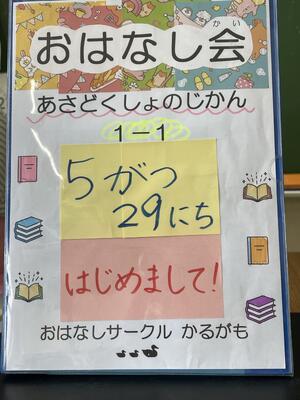 おはなし会
かい
あさどくしょのじかん
1-1
5がつ
29にち
はじめまして!
おはなしサークル かるがも